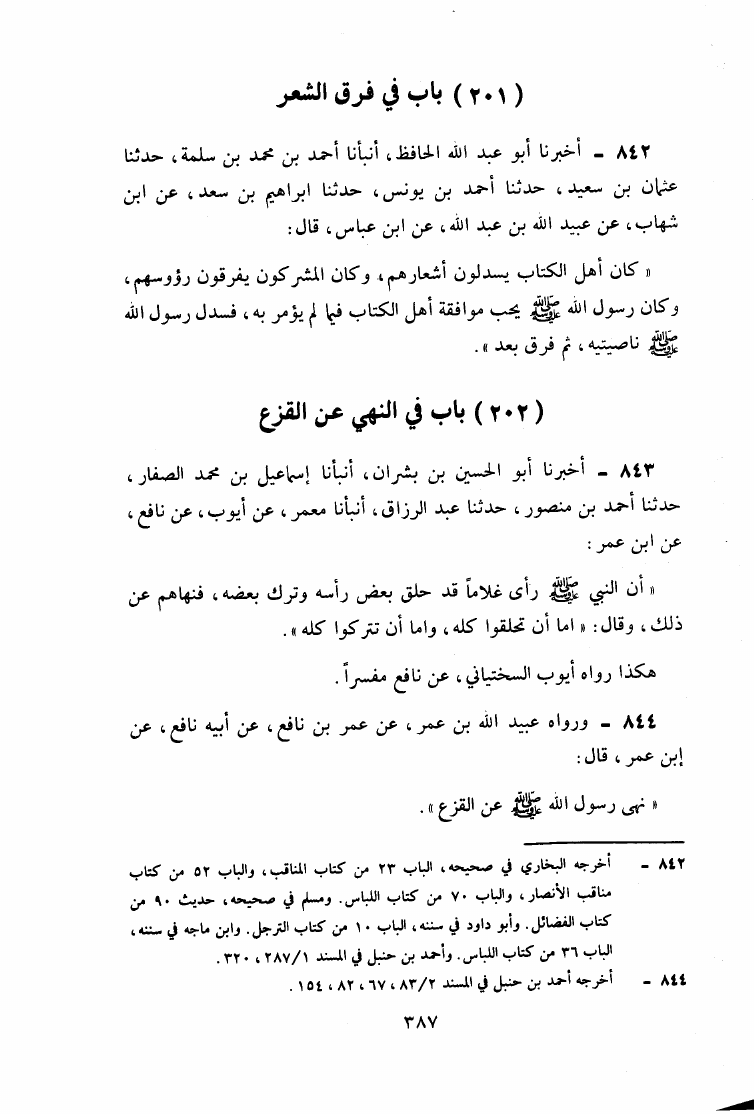 ( ٢٠١ ) باب في فرق الشعر
٨٤٢ - أخبرنا أبو عبد الله الحافظ، أنبأنا أحمد بن محمد بن سلمة، حدثنا
عثمان بن سعيد، حدثنا أحمد بن يونس، حدثنا ابراهيم بن سعد، عن ابن
شهاب، عن عبيد الله بن عبد الله، عن ابن عباس، قال:
« كان أهل الكتاب يسدلون أشعارهم، وكان المشركون يفرقون رؤوسهم،
وكان رسول الله ﷺ يحب موافقة أهل الكتاب فيما لم يؤمر به، فسدل رسول الله
ﷺ ناصيتيه، ثم فرق بعد ».
( ٢٠٢ ) باب في النهي عن القزع
٨٤٣ - أخبرنا أبو الحسين بن بشران، أنبأنا إسماعيل بن محمد الصفار،
حدثنا أحمد بن منصور، حدثنا عبد الرزاق، أنبأنا معمر، عن أيوب، عن نافع،
عن ابن عمر:
« أن النبي ﷺ رأى غلاماً قد حلق بعض رأسه وترك بعضه، فنهاهم عن
ذلك، وقال: « اما أن تحلقوا كله، واما أن تتركوا كله ».
هكذا رواه أيوب السختياني، عن نافع مفسراً.
٨٤٤ - ورواه عبيد الله بن عمر، عن عمر بن نافع، عن أبيه نافع، عن
إبن عمر، قال:
« نهى رسول الله ﷺ عن القزع ».
٨٤٢ - أخرجه البخاري في صحيحه، الباب ٢٣ من كتاب المناقب، والباب ٥٢ من كتاب
مناقب الأنصار، والباب ٧٠ من كتاب اللباس. ومسلم في صحيحه، حديث ٩٠ من
كتاب الفضائل. وأبو داود في سننه، الباب ١٠ من كتاب الترجل. وابن ماجه في سننه،
الباب ٣٦ من كتاب اللباس. وأحمد بن حنبل في المسند ٢٨٧/١، ٣٢٠.
٨٤٤ - أخرجه أحمد بن حنبل في المسند ٨٣/٢، ٦٧، ٨٢، ١٥٤.
٣٨٧